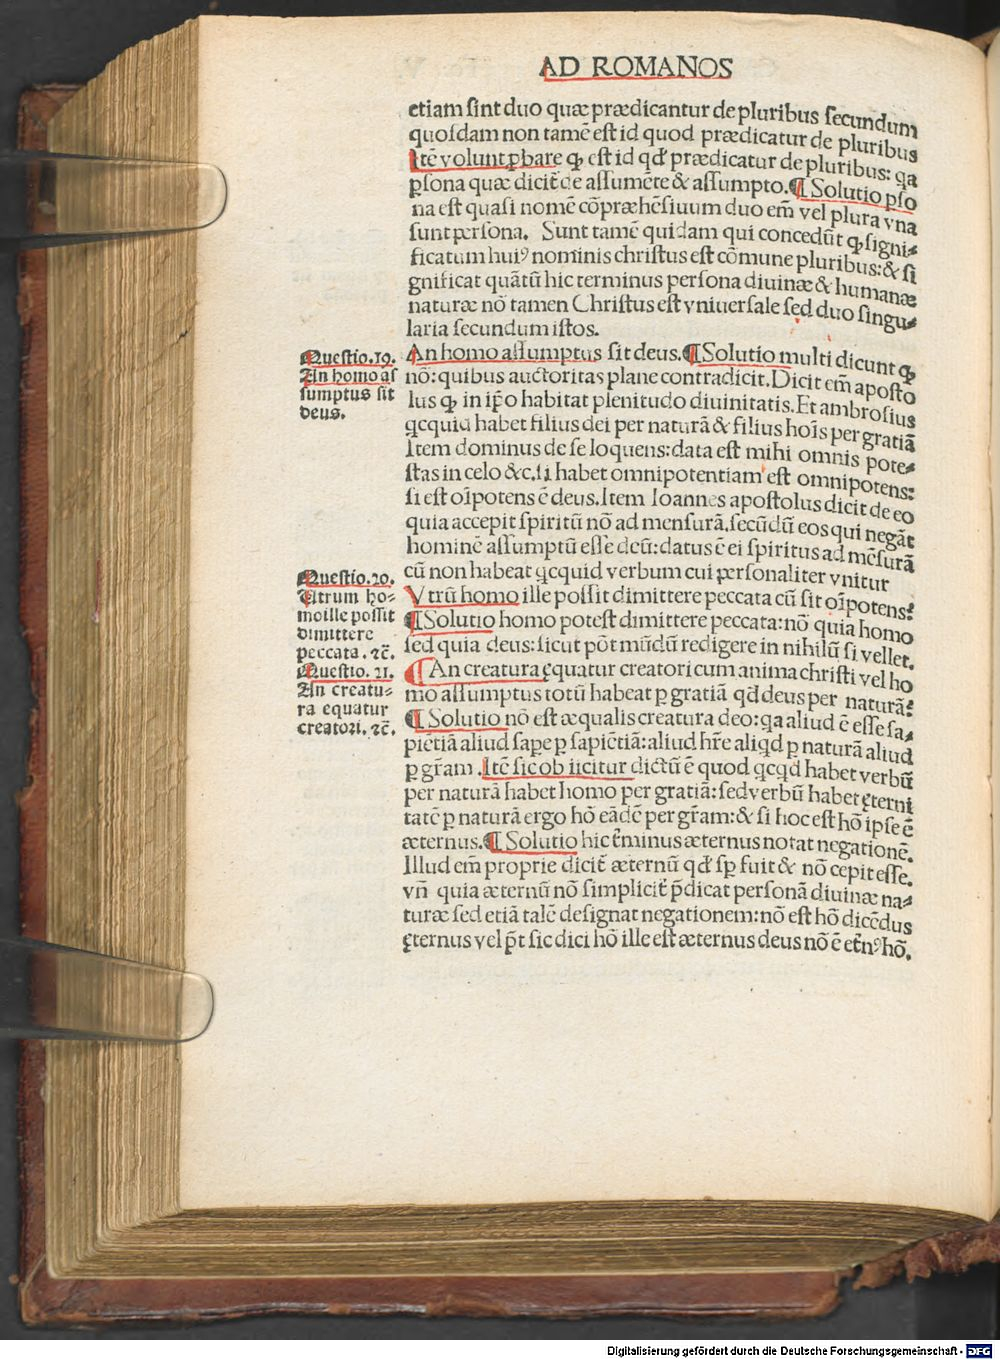 AD ROMANOS
etiam sint duo quæ prædicantur de pluribus secundum
quosdam non tamē est id quod prædicatur de pluribus
Itē volunt ꝓbare ꝙ est id qđ prædicatur de pluribus: qa
ꝑsona quæ dicit̄ de assumēte & assumpto. ¶ Solutio pso
na est quasi nomē cōpræhēsiuum duo em̄ vel plura vna
sunt persona. Sunt tamē quidam qui concedūt ꝙ signi⸗
ficatum huiꝰ nominis christus est cōmune pluribus: & si
gnificat quātū hic terminus persona diuinæ & humanæ
naturæ nō tamen Christus est vniuersale sed duo singu⸗
laria secundum istos.
Questio.19.
An homo as
sumptus sit
deus.
An homo assumptus sit deus. ¶ Solutio multi dicunt ꝙ
nō: quibus auctoritas plane contradicit. Dicit em̄ aposto
lus ꝙ in ip̄o habitat plenitudo diuinitatis. Et ambrosius
qcquid habet filius dei per naturā & filius hoīs per gratiā
Item dominus de se loquens: data est mihi omnis pote⸗
stas in celo &c. si habet omnipotentiam est omnipotens:
si est oīpotens ē deus. Item Ioannes apostolus dicit de eo
quia accepit spiritū nō ad mensurā. secūdū eos qui negāt
hominē assumptū esse deū: datus ē ei spiritus ad mēsurā
cū non habeat qcquid verbum cui personaliter vnitur
Questio.20.
Utrum ho⸗
mo ille possit
dimittere
peccata. ⁊c̄.
Vtrū homo ille possit dimittere peccata cū sit oīpotens:
¶ Solutio homo potest dimittere peccata: nō quia homo
sed quia deus: sicut pōt mūdū redigere in nihilū si vellet.
Questio. 21.
An creatu⸗
ra equatur
creatori. ⁊c̄.
¶ An creatura ęquatur creatori cum anima christi vel ho
mo assumptus totū habeat ꝑ gratiā qđ deus per naturā:
¶ Solutio nō est æqualis creatura deo: qa aliud ē esse sa⸗
piētiā aliud sapere ꝑ sapiētiā: aliud hr̄e aliqd ꝑ naturā aliud
ꝑ gr̄am. Itē sic obiicitur dictū ē quod qcqd habet verbū
per naturā habet homo per gratiā: sed verbū habet ęterni
tatē ꝑ naturā ergo hō eādē per gr̄am: & si hoc est hō ipse ē
æternus. ¶ Solutio hic t̄minus æternus notat negationē.
Illud em̄ proprie dicit̄ æternū qđ sp̄ fuit & nō cepit esse.
vn̄ quia æternū nō simplicit̄ p̄dicat personā diuinæ na⸗
turæ sed etiā talē designat negationem: nō est hō dicēdus
ęternus vel p̄t sic dici hō ille est æternus deus nō ē et̄nꝰ hō.
Digitalisierung gefördert durch die Deutsche Forschungsgemeinschaft - DFG